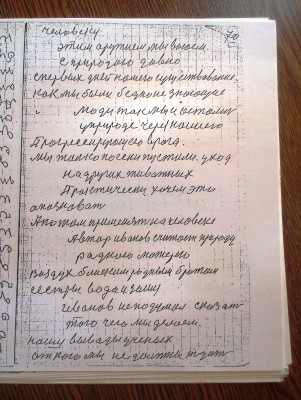 человеку 70
этим оружием мы воюем
с природою давно
с первых дней нашего существование.
как мы были бедно не знающие
люди так мы и остались
у природе через нашего
Прогрессирующего врага.
мы только по сени пустили. уход
на других животных
Практически хочем это
опознават
А потом применять на человеке
Автор иванов считает природу
родного матерью
воздух близким родным братом
сестры вода и землю
иванов не подумал сказат
того чего мы делаем
нашу выводы ученых
от кого мы не должны ждат